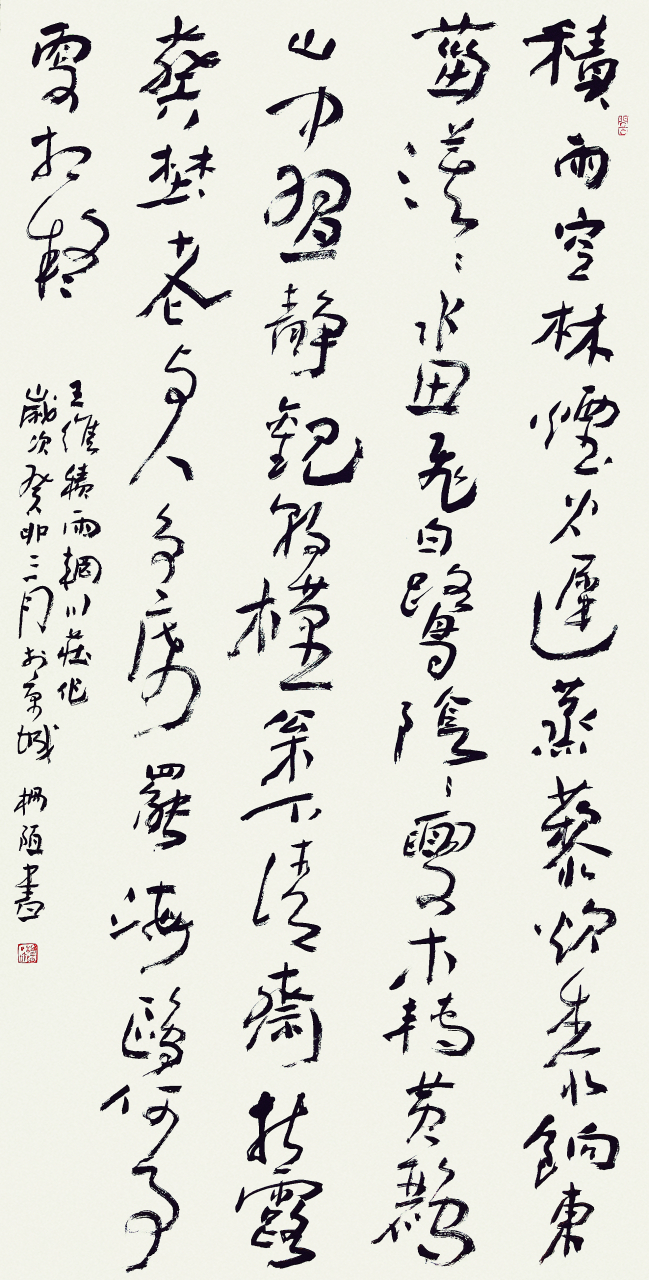 積雨空林煙火遲蒸藜炊黍餉東
菑漠〻水田飛白鷺陰〻夏木轉黄鸝
山中習靜觀朝槿松下清齋折露
葵埜老与人爭席罷海鷗何事
更相疑
王維積雨輞川莊作
歲次癸卯三月於京城 書